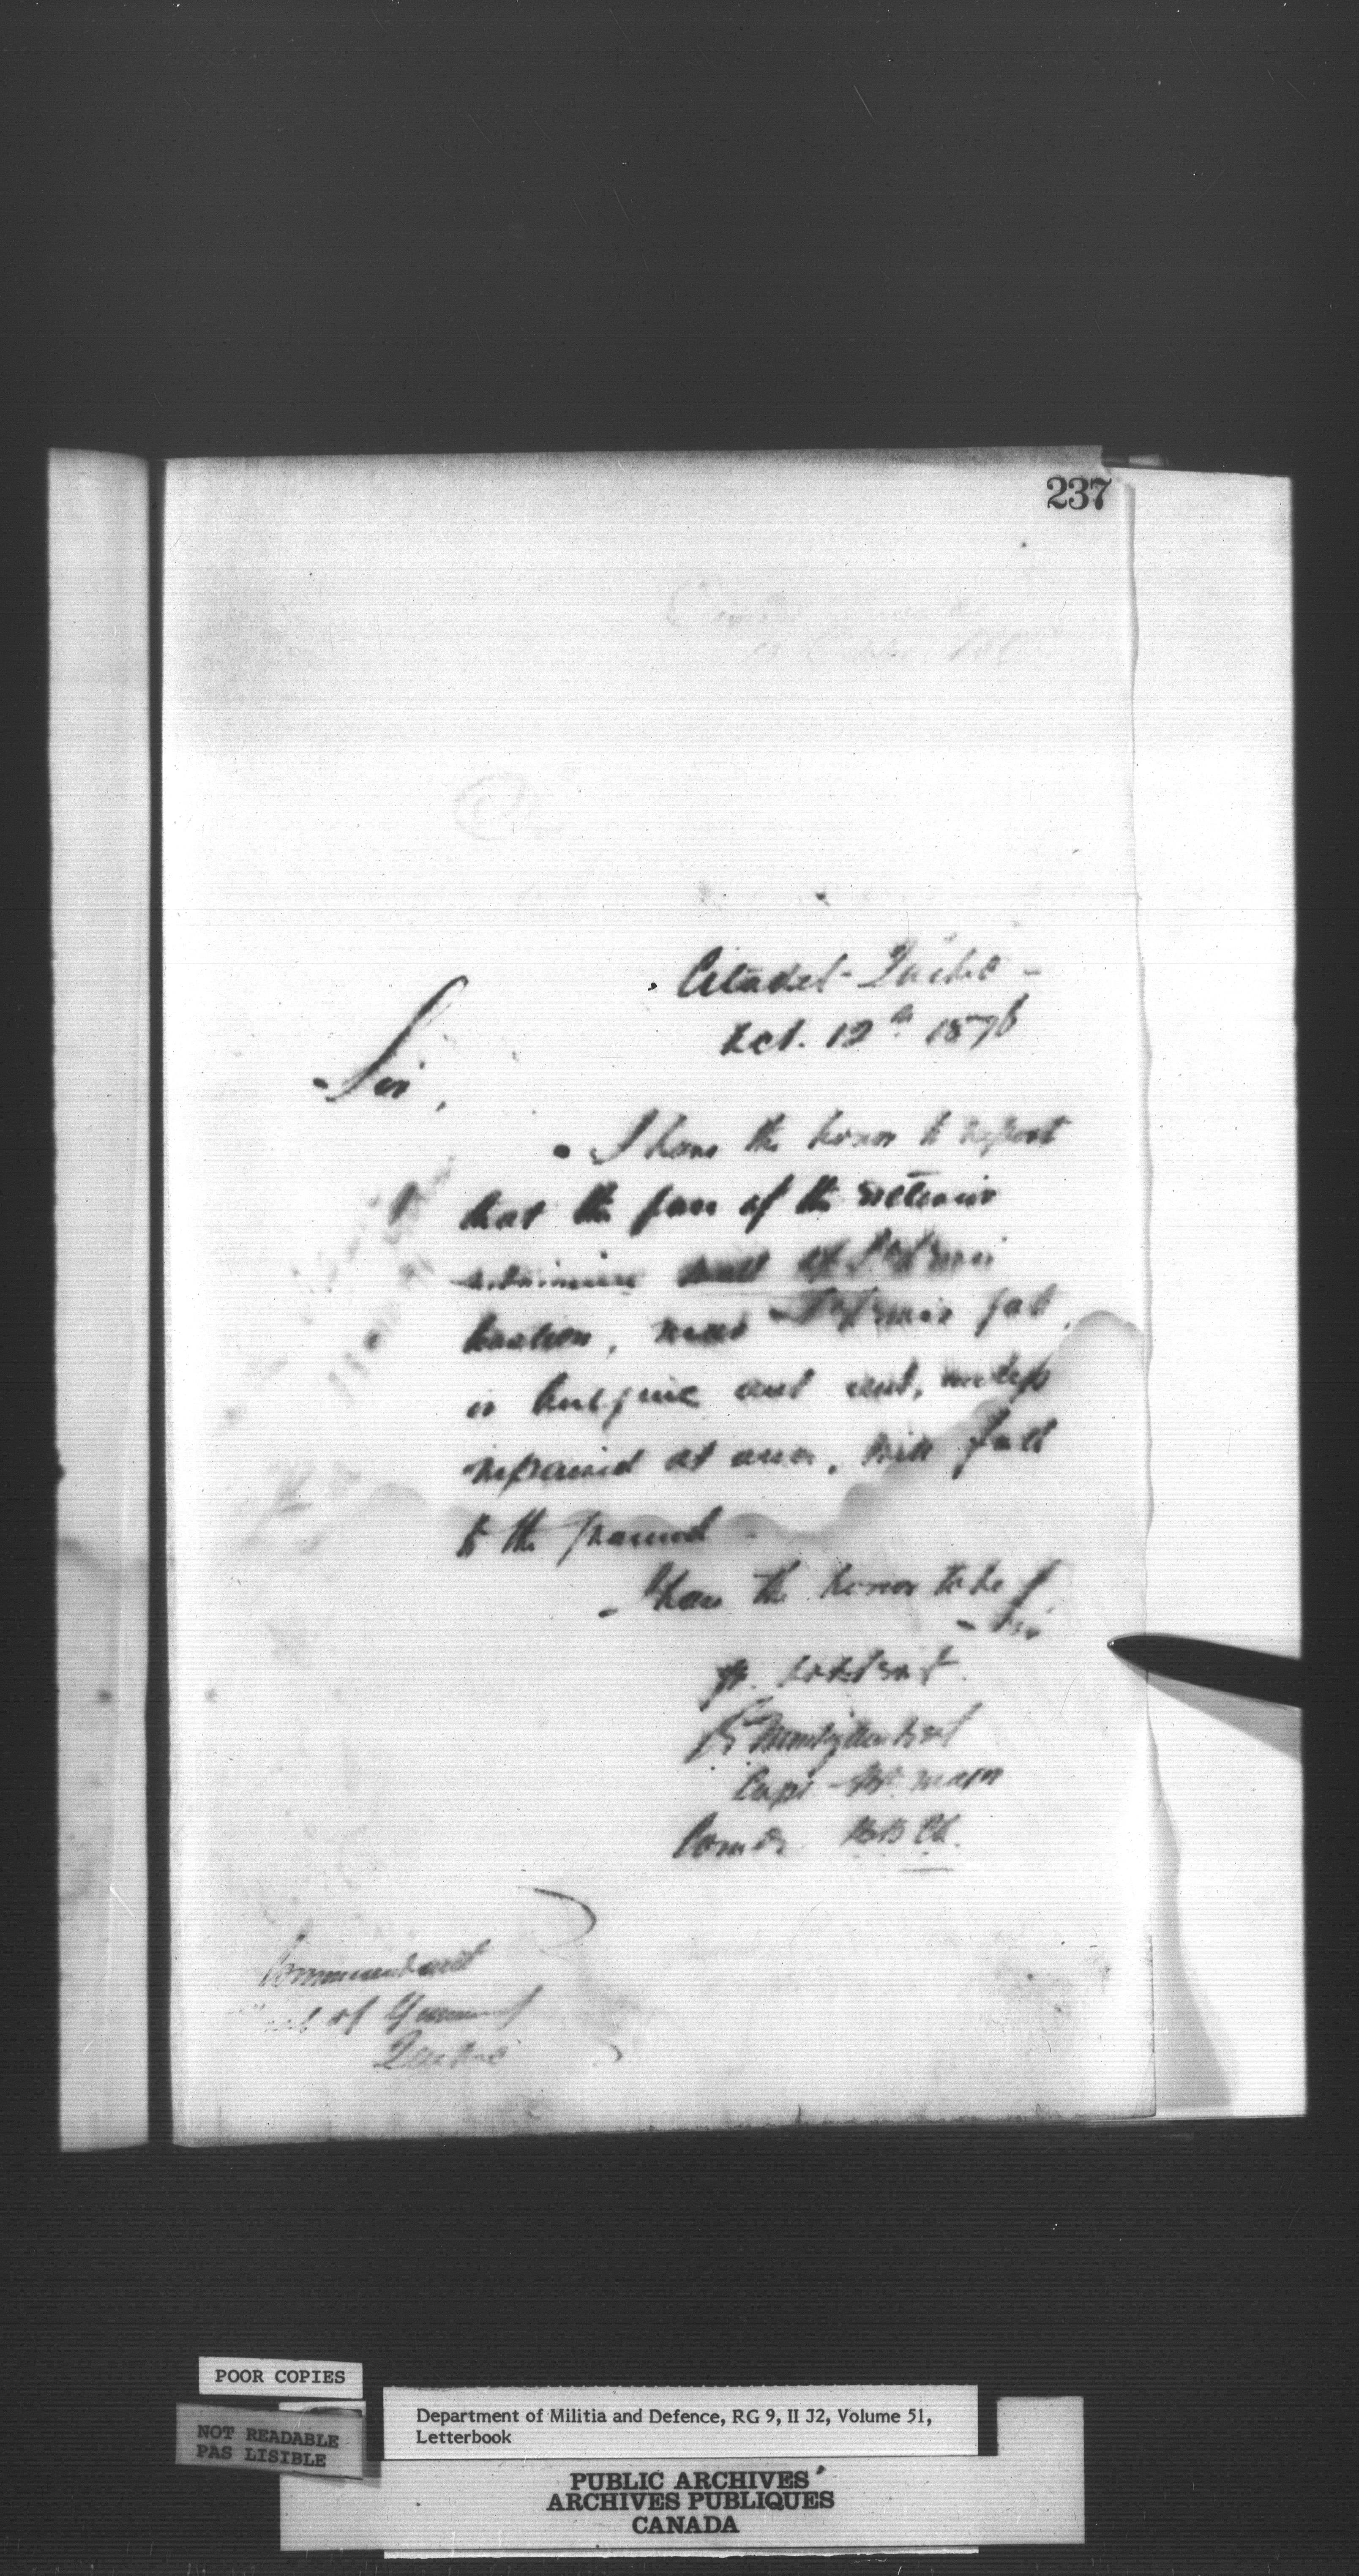 237
Citadel - Quebec -
Oct. 12th 1876
Sir,
I have the honor to report
that the face of the exterior
retaining wall of St Louis
bastion, near St Louis gate,
is bulging out and, unless
repaired at once, will fall
to the ground
I have the honor to be
Sir
yr. obdt servt
Capt
Comdg B.B.
Commandant
of Gunnery
Quebec
POOR COPIES
NOT READABLE
PAS LISIBLE
Department of Militia and Defence, RG 9, II J2, Volume 51,
Letterbook
PUBLIC ARCHIVES
ARCHIVES PUBLIQUES
CANADA